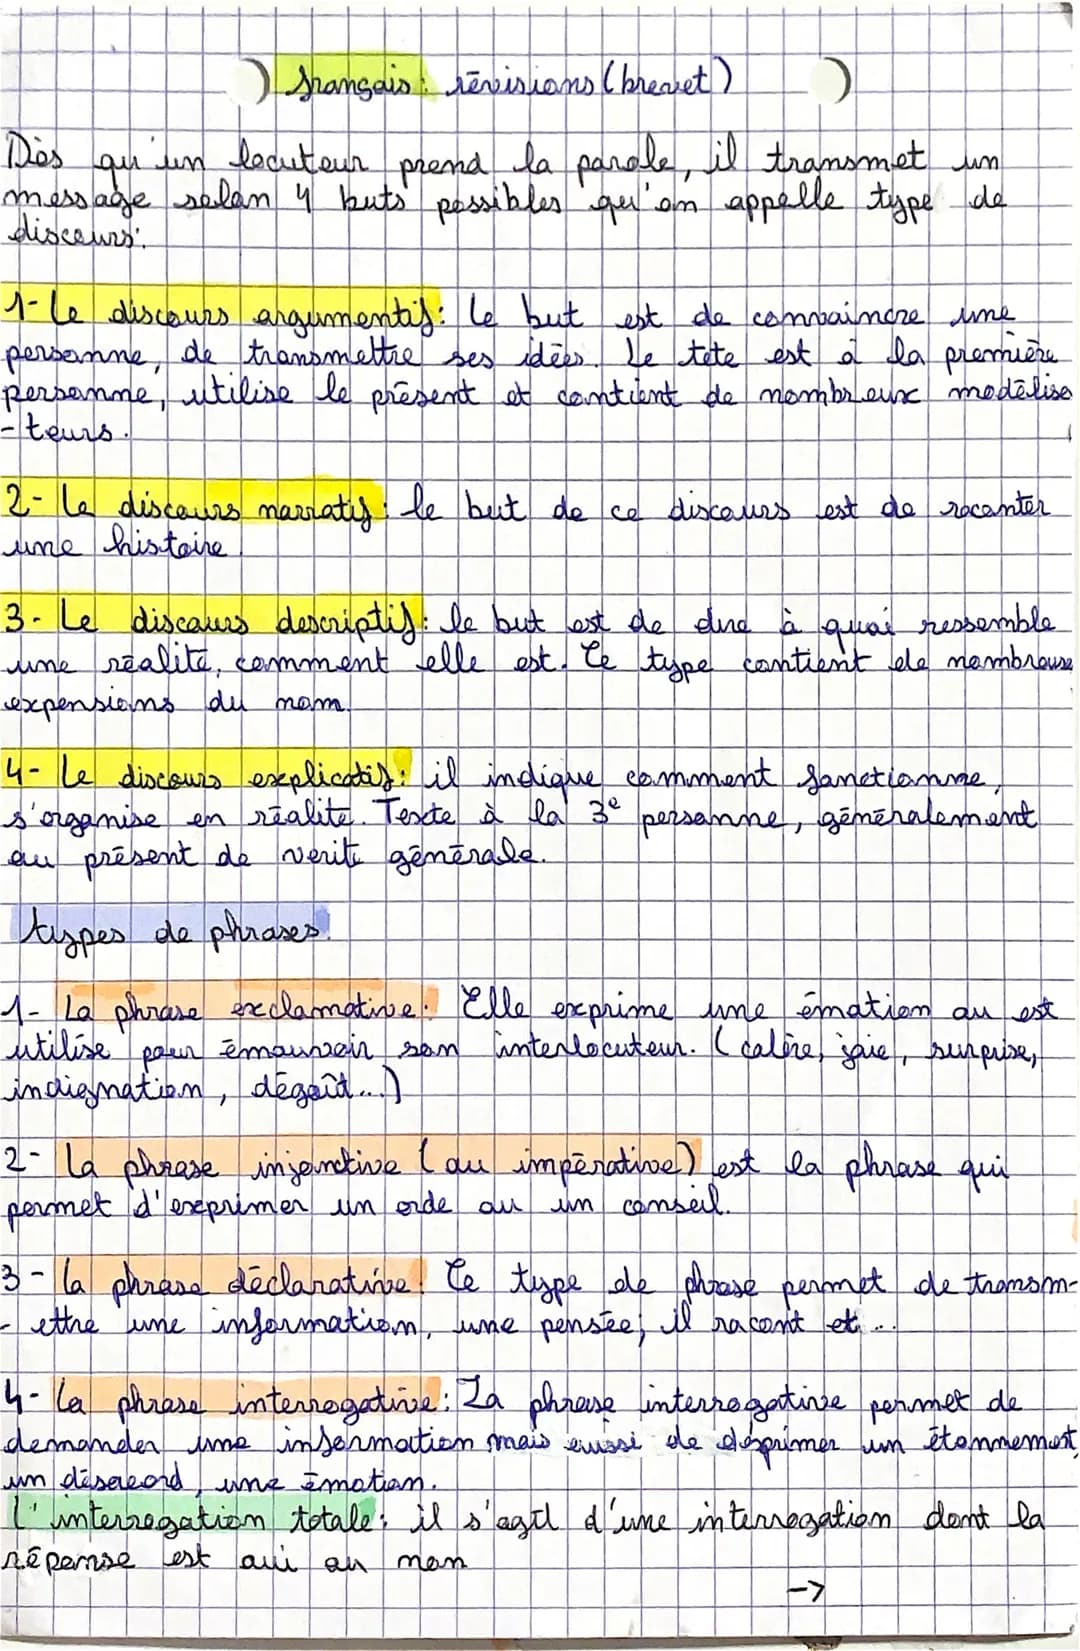 français : révisions (brevet)
Dès qu'un locuteur prend la parole, il transmet un
message selon 4 buts possibles qu'on appelle type de
discours :
1- Le discours argumentif : le but est de convaincre une
personne, de transmettre ses idées. Le tete est à la première
personne, utilise le présent et contient de nombreux modélisa
-teurs.
2- Le discours narratif : le but de ce discours est de raconter
une histoire.
3- Le discours descriptif : le but est de dire à quoi ressemble
une réalité, comment elle est. Ce type contient de nombreuse
expensions du nom.
4- Le discours explicatif : il indique comment fonctionne,
s'organise en réalité. Texte à la 3e personne, généralement
au présent de verité générale.
types de phrases.
1- La phrase exclamative : Elle exprime une émotion ou est
utilisé pour émouvoir son interlocuteur. (colère, joie, surprise,
indignation, dégoût...)
2- La phrase injonctive (ou impérative) est la phrase qui
permet d'exprimer un orde ou un conseil.
3- la phrase déclarative : Ce type de phrase permet de transm-
- ettre une information, une pensée, il racont et ...
4- La phrase interrogative : La phrase interrogative permet de
demander une information mais aussi de exprimer un étonnement,
un désaccord, une émotion.
L'interrogation totale : il s'agit d'une interrogation dont la
réponse est oui ou non
->